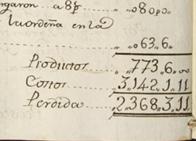 ngaron a 8p ... „080„0..
la ordeña en la
„ „63„6..
Productos .... „773„6„00
Costos .... 3„142„1„11
Perdida .. 2„368„3„11